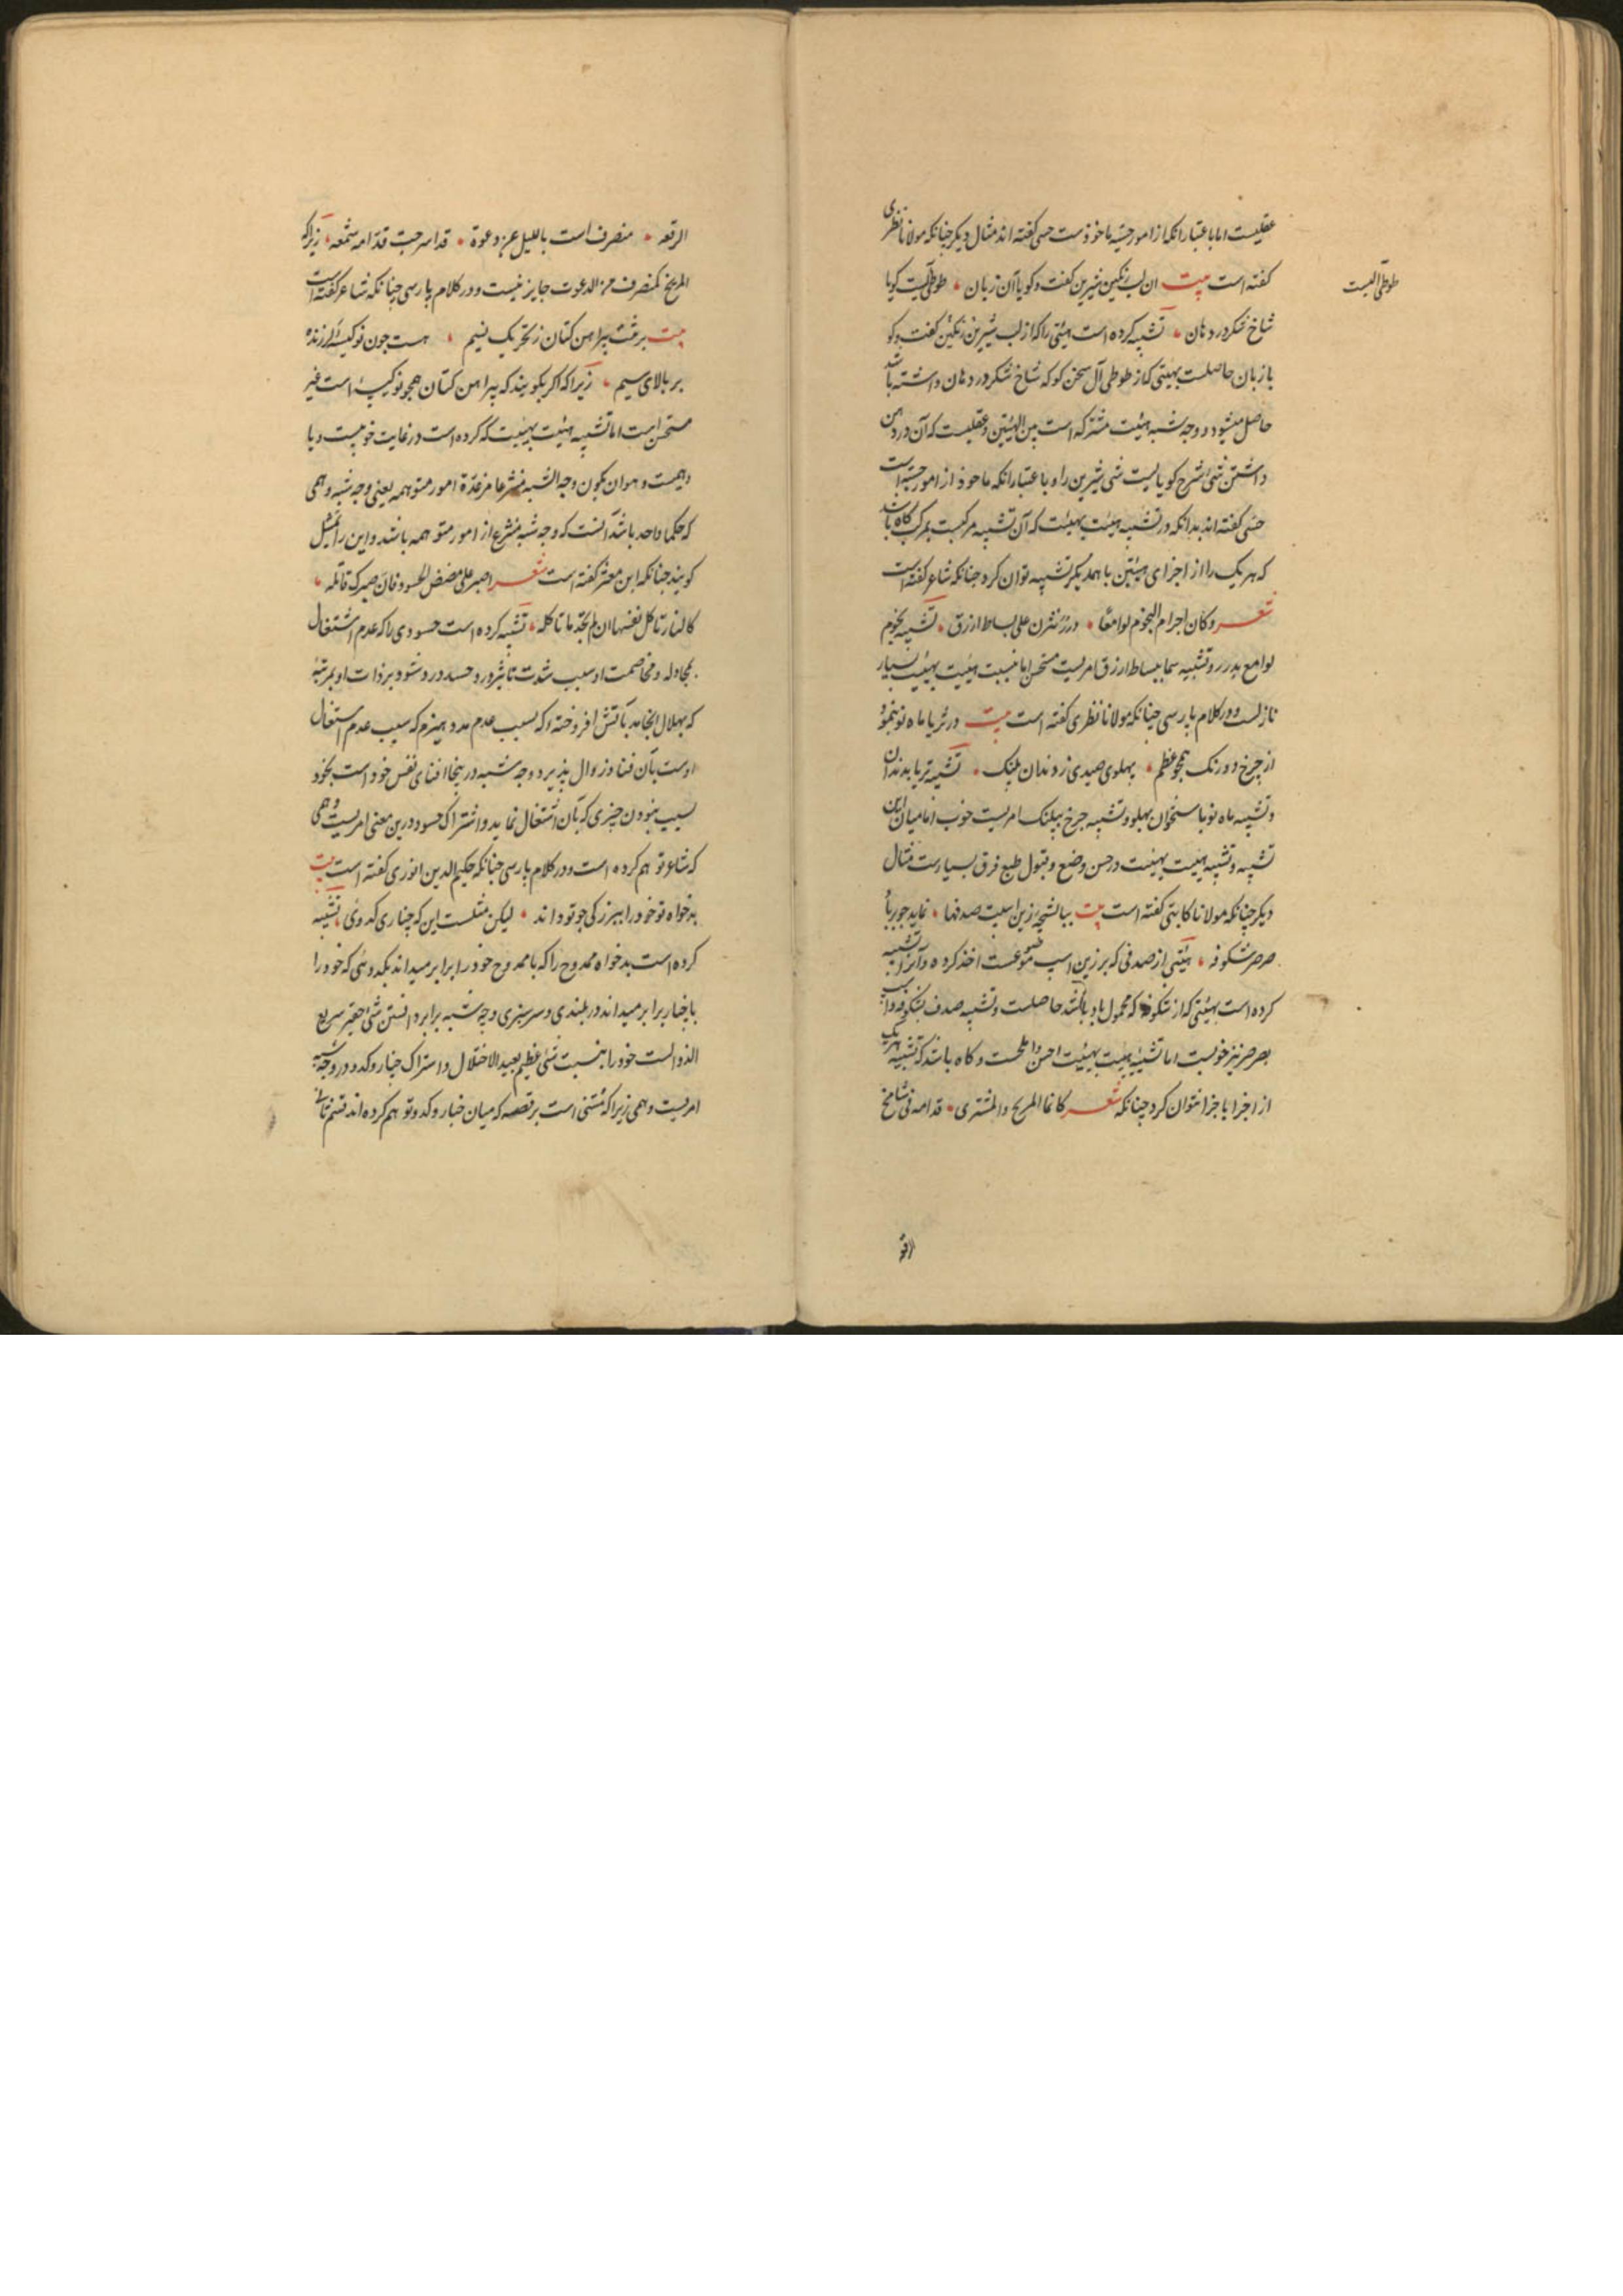 عقلیست اما باعتبار انکه از امور حسیّه ماخوذست حسی کفته اند مثال دیکر چنانکه مولانا نظری
کفته است بیت ان لب رنکین شیرین کفت و کویا آن زبان طوطی آلیست کویا
طوطی آلیست
شاخ شکر در دهان تشبیه کرده است هیئتی را که از لب شیرین رنکین کفت و کو
با زبان حاصلست بهیئتی که از طوطی آل سخن کو که شاخ شکر در دهان داشته باشد
حاصل میشود و وجه شبه هیئت مشترکه است بین الهیئتین و عقلیست که آن در دهن
داشتن شئ سرخ کویا لیست شئ شیرین را و باعتبار انکه ماخوذ از امور حسیّه است
حسّی کفته اند بدانکه در تشبیه هیئت بهیئت که آن تشبیه مرکبست بمرکب کاه باشد
که هر یک را از اجزای هیئتین با همدیکر تشبیه توان کرد چنانکه شاعر کفته است
شعر و کان اجرام النجوم لوامعًا درر نثرن علی بساط ازرق تشبیه نجوم
لوامع بدرر و تشبیه سما ببساط ازرق امریست مستحسن اما نسبت هیئت بهیئت بسیار
نازلست و در کلام پارسی چنانکه مولانا نظری کفته است بیت در ثریا ماه نو بنمود
از چرخ دو رنک همچو عظم پهلوی صیدی ز دندان پلنک تشبیه ثریا بدندان
و تشبیه ماه نو باستخوان پهلو و تشبیه چرخ بپلنک امریست خوب اما میان این
تشبیه و تشبیه هیئت بهیئت در حسن وضع و قبول طبع فرق بسیارست مثال
دیکر چنانکه مولانا کاتبی کفته است بیت زین اسبت صدفها نماید جو بر باد
صرصر شکوفه هیئتی از صدفی که بر زین اسب موضوعست اخذ کرده و آنرا تشبیه
کرده است بهیئتی که از شکوفه که محمول باد باشد حاصلست و تشبیه صدف بشکوفه و اسب
بصرصر نیز خوبست اما تشبیه هیئت بهیئت احسن و املحست و کاه باشد که تشبیه هر یک
از اجزا باجزا نتوان کرد چنانکه شعر کانما المریخ والمشتری قدامه فی شامخ
الرفعه
الرفعه منصرف است باللیل عن دعوة قد اسرجت قدّامه شمعه زیرا که
المریخ کمنصرف من الدعوت جایز نیست و در کلام پارسی چنانکه شاعر کفته است
بیت بر تنت پیراهن کتان ز تحریک نسیم هست چون نو کیسه لرزنده
بر بالای سیم زیرا که اکر بکویند که پیراهن کتان همچو نو کیسه است غیر
مستحسن است اما تشبیه هیئت بهیئت که کرده است در غایت خوبیست و یا
وهمیست و هو ان یکون وجه الشبه منتزعا من عدّة امور متوهمه یعنی وجه شبه وهمی
که حکما واحد باشد آنست که وجه شبه منتزع از امور متوهمه باشد و این را تمثیل
کویند چنانکه ابن معتز کفته است شعر اصبر علی مضض الحسود فان صبرک قاتله
کالنار تاکل نفسها ان لم تجد ما تاکله تشبیه کرده است حسودی را که عدم اشتغال
بمجادله و مخاصمت او سبب شدت تاثیر درد حسد در و شود بر ذات او بمرتبه
که بهلاک انجامد بآتش افروخته که بسبب عدم مدد هیزم که سبب عدم اشتغال
اوست بآن فنا و زوال پذیرد و وجه شبه درینجا افنای نفس خود است بخود
بسبب نبودن چیزی که بآن اشتغال نماید و اشتراک حسود درین معنی امریست وهمی
که شاعر توهم کرده است و در کلام پارسی چنانکه حکیم الدین انوری کفته است بیت
بدخواه تو خود را ببزرکی جو تو داند لیکن مثلست این که چناری کدوئی تشبیه
کرده است بدخواه ممدوح را که با ممدوح خود را برابر میداند بکدوئی که خود را
با چنار برابر میداند در بلندی و سرسبزی و وجه شبه برابر دانستن شئ حقیر سریع
الزوالست خود را بنسبت شئ عظیم بعید الاختلال و اشتراک چنار و کدو در وجه شبه
امریست وهمی زیرا که مبتنی است بر قصه که میان چنار و کدو توهم کرده اند قسم ثانی